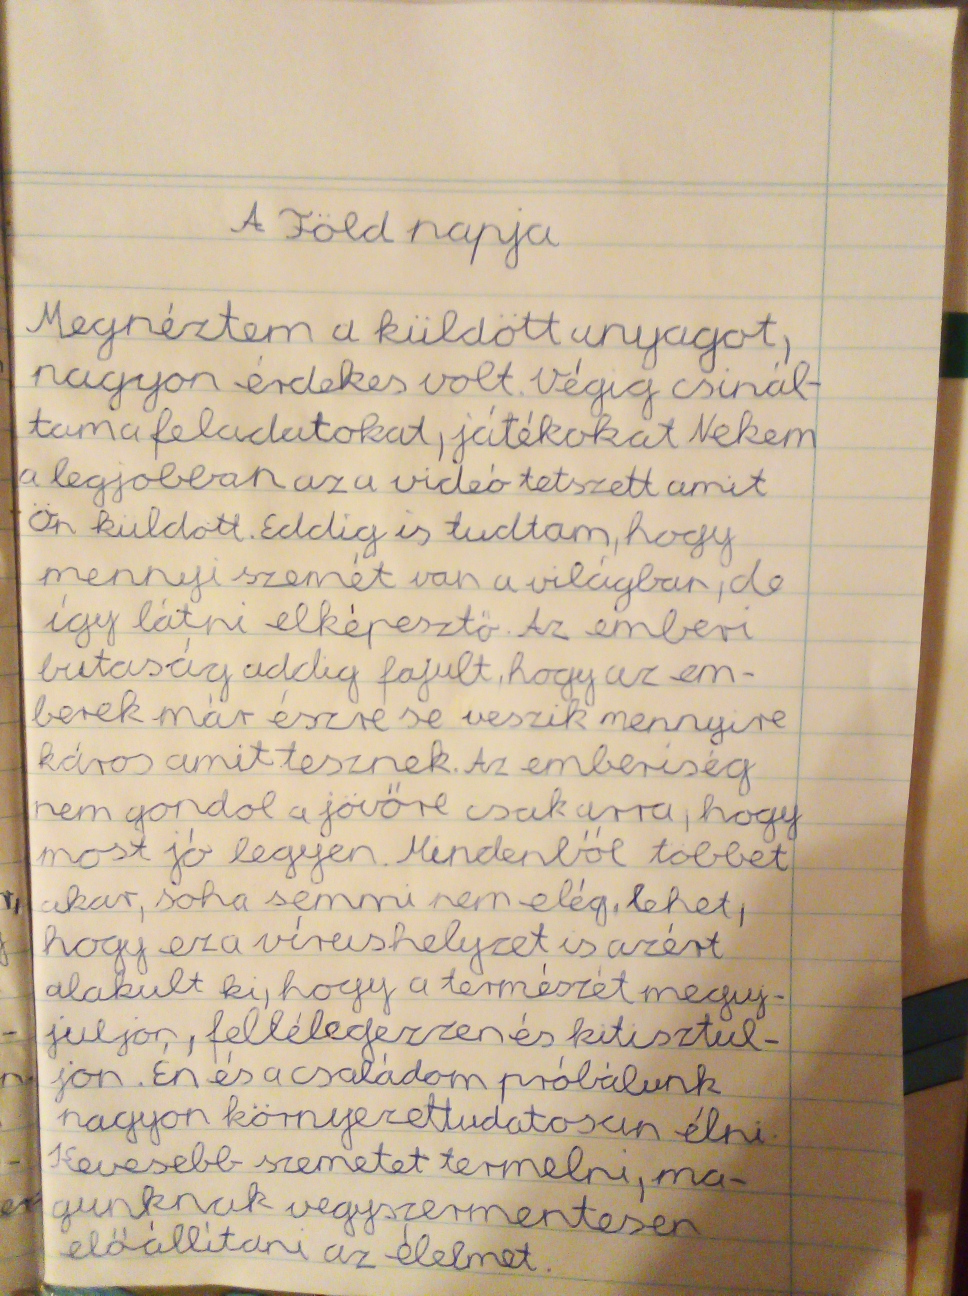 A Föld napja
Megnéztem a küldött anyagot,
nagyon érdekes volt. Végig csinál-
tam a feladatokat, játékokat Nekem
a legjobban az a videó tetszett amit
Ön küldött. Eddig is tudtam, hogy
mennyi szemét van a világban, de
így látni elképesztő. Az emberi
butaság addig fajult, hogy az em-
berek már észre se veszik mennyire
káros amit tesznek. Az emberiség
nem gondol a jövőre csak arra, hogy
most jó legyen. Mindenből többet
akar, soha semmi nem elég. lehet,
hogy ez a vírushelyzet is azért
alakult ki, hogy a természet meguj-
juljon, fellélegezzen és kitisztul-
jon. Én és a családom próbálunk
nagyon környezettudatosan élni.
Kevesebb szemetet termelni, ma-
gunknak vegyszermentesen
előállítani az élelmet.